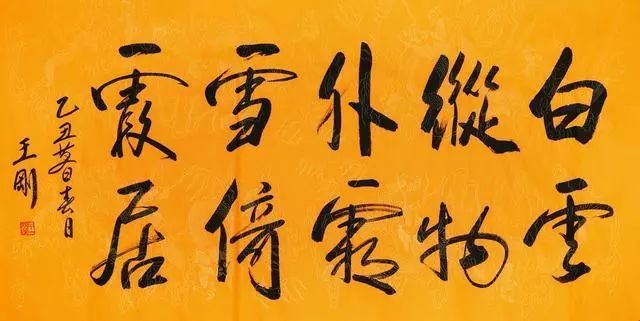 白雲
縱物
外霜
雪倚
霞居
乙丑暮春月
王剛